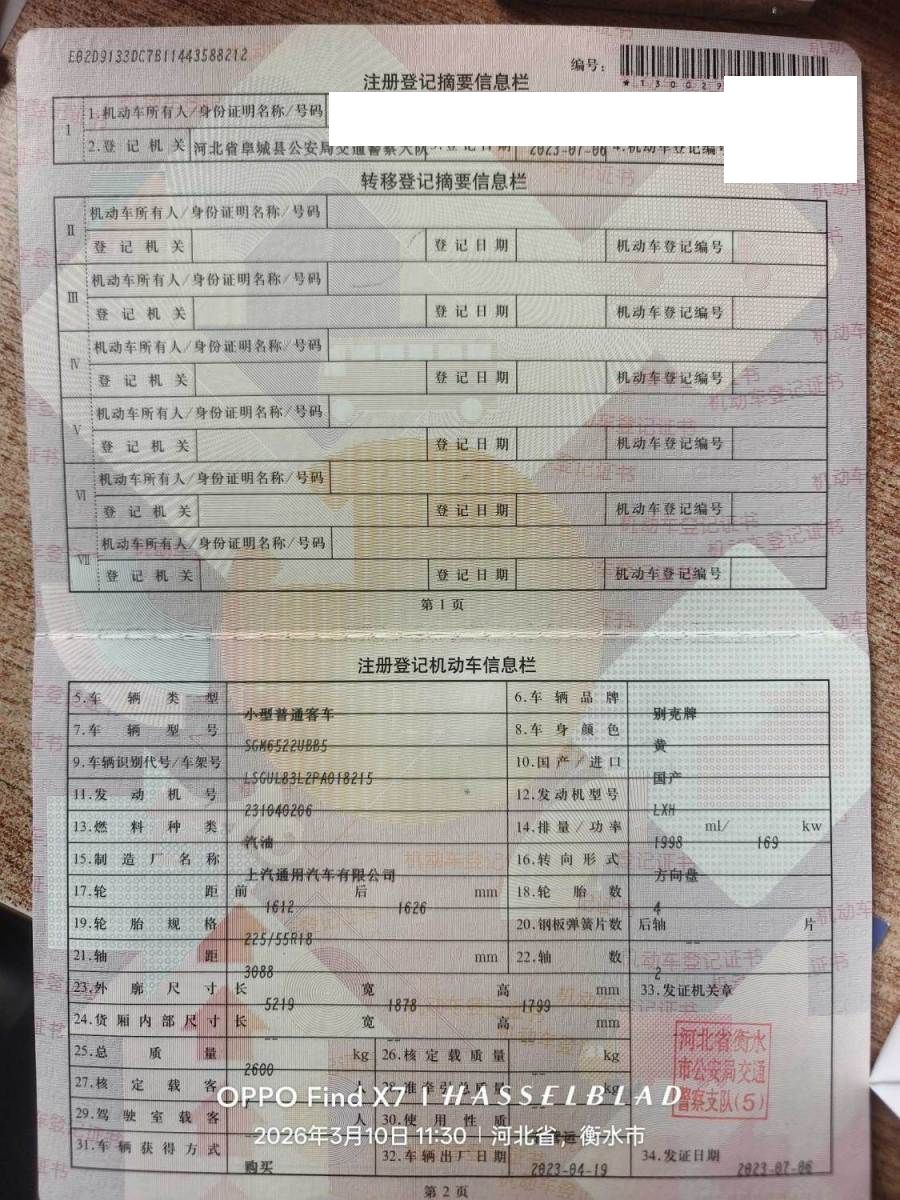 E02D9133DC7B11443588212
编号：
*13029
注册登记摘要信息栏
Ⅰ 1.机动车所有人/身份证明名称/号码
2.登记机关 河北省阜城县公安局交通警察大队 3.登记日期 2023-07-06 4.机动车登记编
转移登记摘要信息栏
Ⅱ 机动车所有人/身份证明名称/号码
登记机关 登记日期 机动车登记编号
Ⅲ 机动车所有人/身份证明名称/号码
登记机关 登记日期 机动车登记编号
Ⅳ 机动车所有人/身份证明名称/号码
登记机关 登记日期 机动车登记编号
Ⅴ 机动车所有人/身份证明名称/号码
登记机关 登记日期 机动车登记编号
Ⅵ 机动车所有人/身份证明名称/号码
登记机关 登记日期 机动车登记编号
Ⅶ 机动车所有人/身份证明名称/号码
登记机关 登记日期 机动车登记编号
第 1 页
注册登记机动车信息栏
5.车辆类型 小型普通客车 6.车辆品牌 别克牌
7.车辆型号 SGM6522UBB5 8.车身颜色 黄
9.车辆识别代号/车架号 LSGUL83L2PA018215 10.国产/进口 国产
11.发动机号 231040206 12.发动机型号 LXH
13.燃料种类 汽油 14.排量/功率 1998 ml/ 169 kw
15.制造厂名称 上汽通用汽车有限公司 16.转向形式 方向盘
17.轮距 前 1612 后 1626 mm 18.轮胎数 4
19.轮胎规格 225/55R18 20.钢板弹簧片数 后轴 -- 片
21.轴距 3088 mm 22.轴数 2
23.外廓尺寸 长 5219 宽 1878 高 1799 mm 33.发证机关章
24.货厢内部尺寸 长 -- 宽 -- 高 -- mm
河北省衡水
市公安局交通
警察支队(5)
25.总质量 2600 kg 26.核定载质量 -- kg
27.核定载客 7 人 28.准牵引总质量 -- kg
29.驾驶室载客 -- 人 30.使用性质
31.车辆获得方式 购买 32.车辆出厂日期 2023-04-19 34.发证日期 2023-07-06
OPPO Find X7 | HASSELBLAD
2026年3月10日 11:30 | 河北省，衡水市
第 2 页